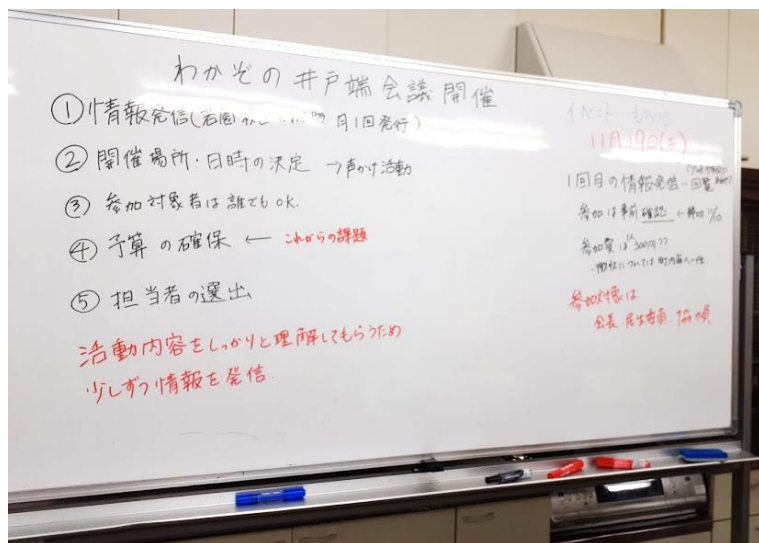 わかぞの井戸端会議開催
① 情報発信(若園 月1回発行)
② 開催場所・日時の決定 →声かけ活動
③ 参加対象者は誰でもOK.
④ 予算の確保 ← これからの課題
⑤ 担当者の選出
活動内容をしっかりと理解してもらうため
少しずつ情報を発信
イベント もちつき
11月19日(土)
1回目の情報発信-回覧
参加は事前確認 ←締切
参加費は 300円??
参加対象は
会長 民生委員・協力員